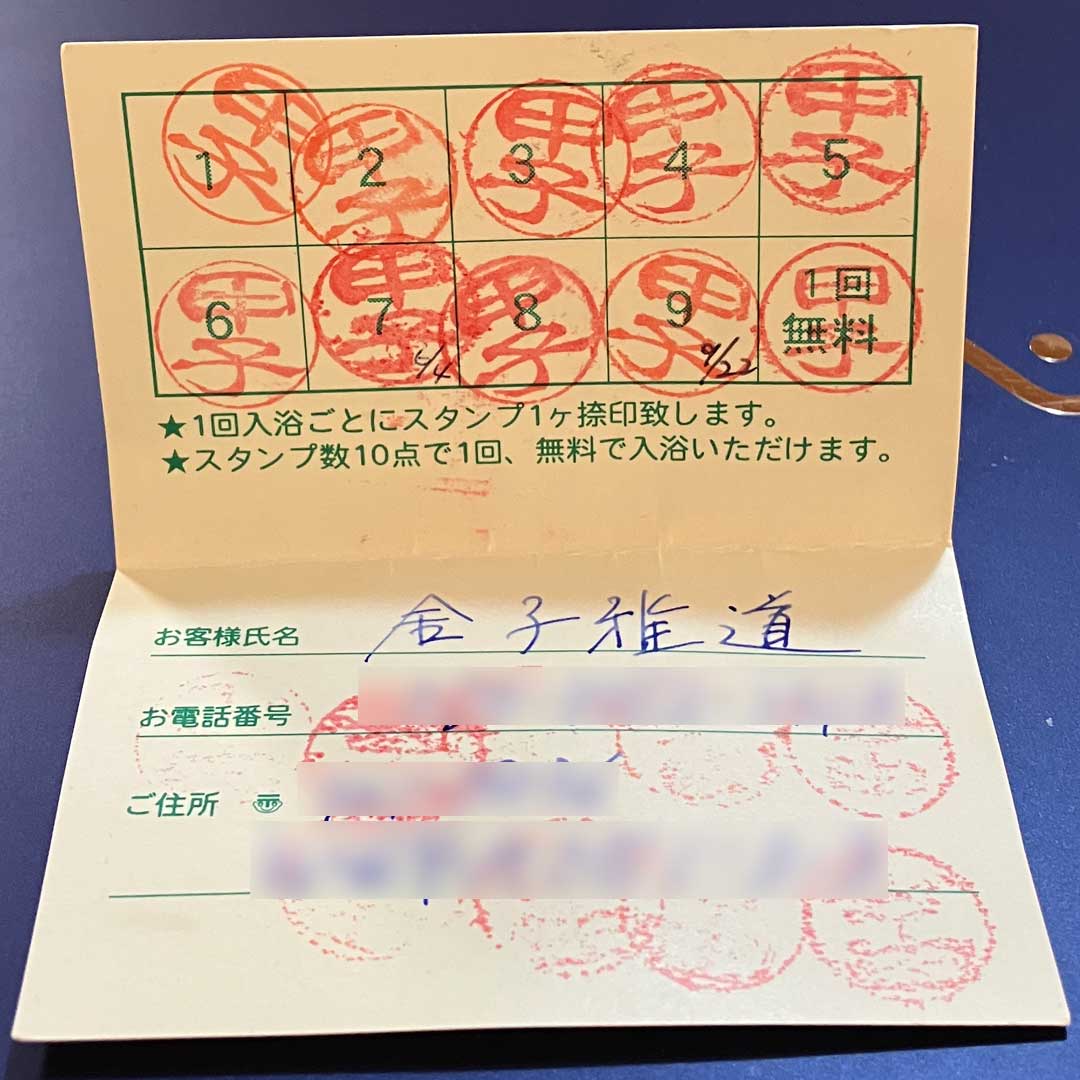 1 2 3 4 5
甲子 甲子 甲子 甲子 甲子
6 7 8 9 1回無料
甲子 甲子 甲子 甲子 甲子
9/22
★1回入浴ごとにスタンプ1ヶ捺印致します。
★スタンプ数10点で1回、無料で入浴いただけます。
お客様氏名 金子雅道
お電話番号
ご住所 〠